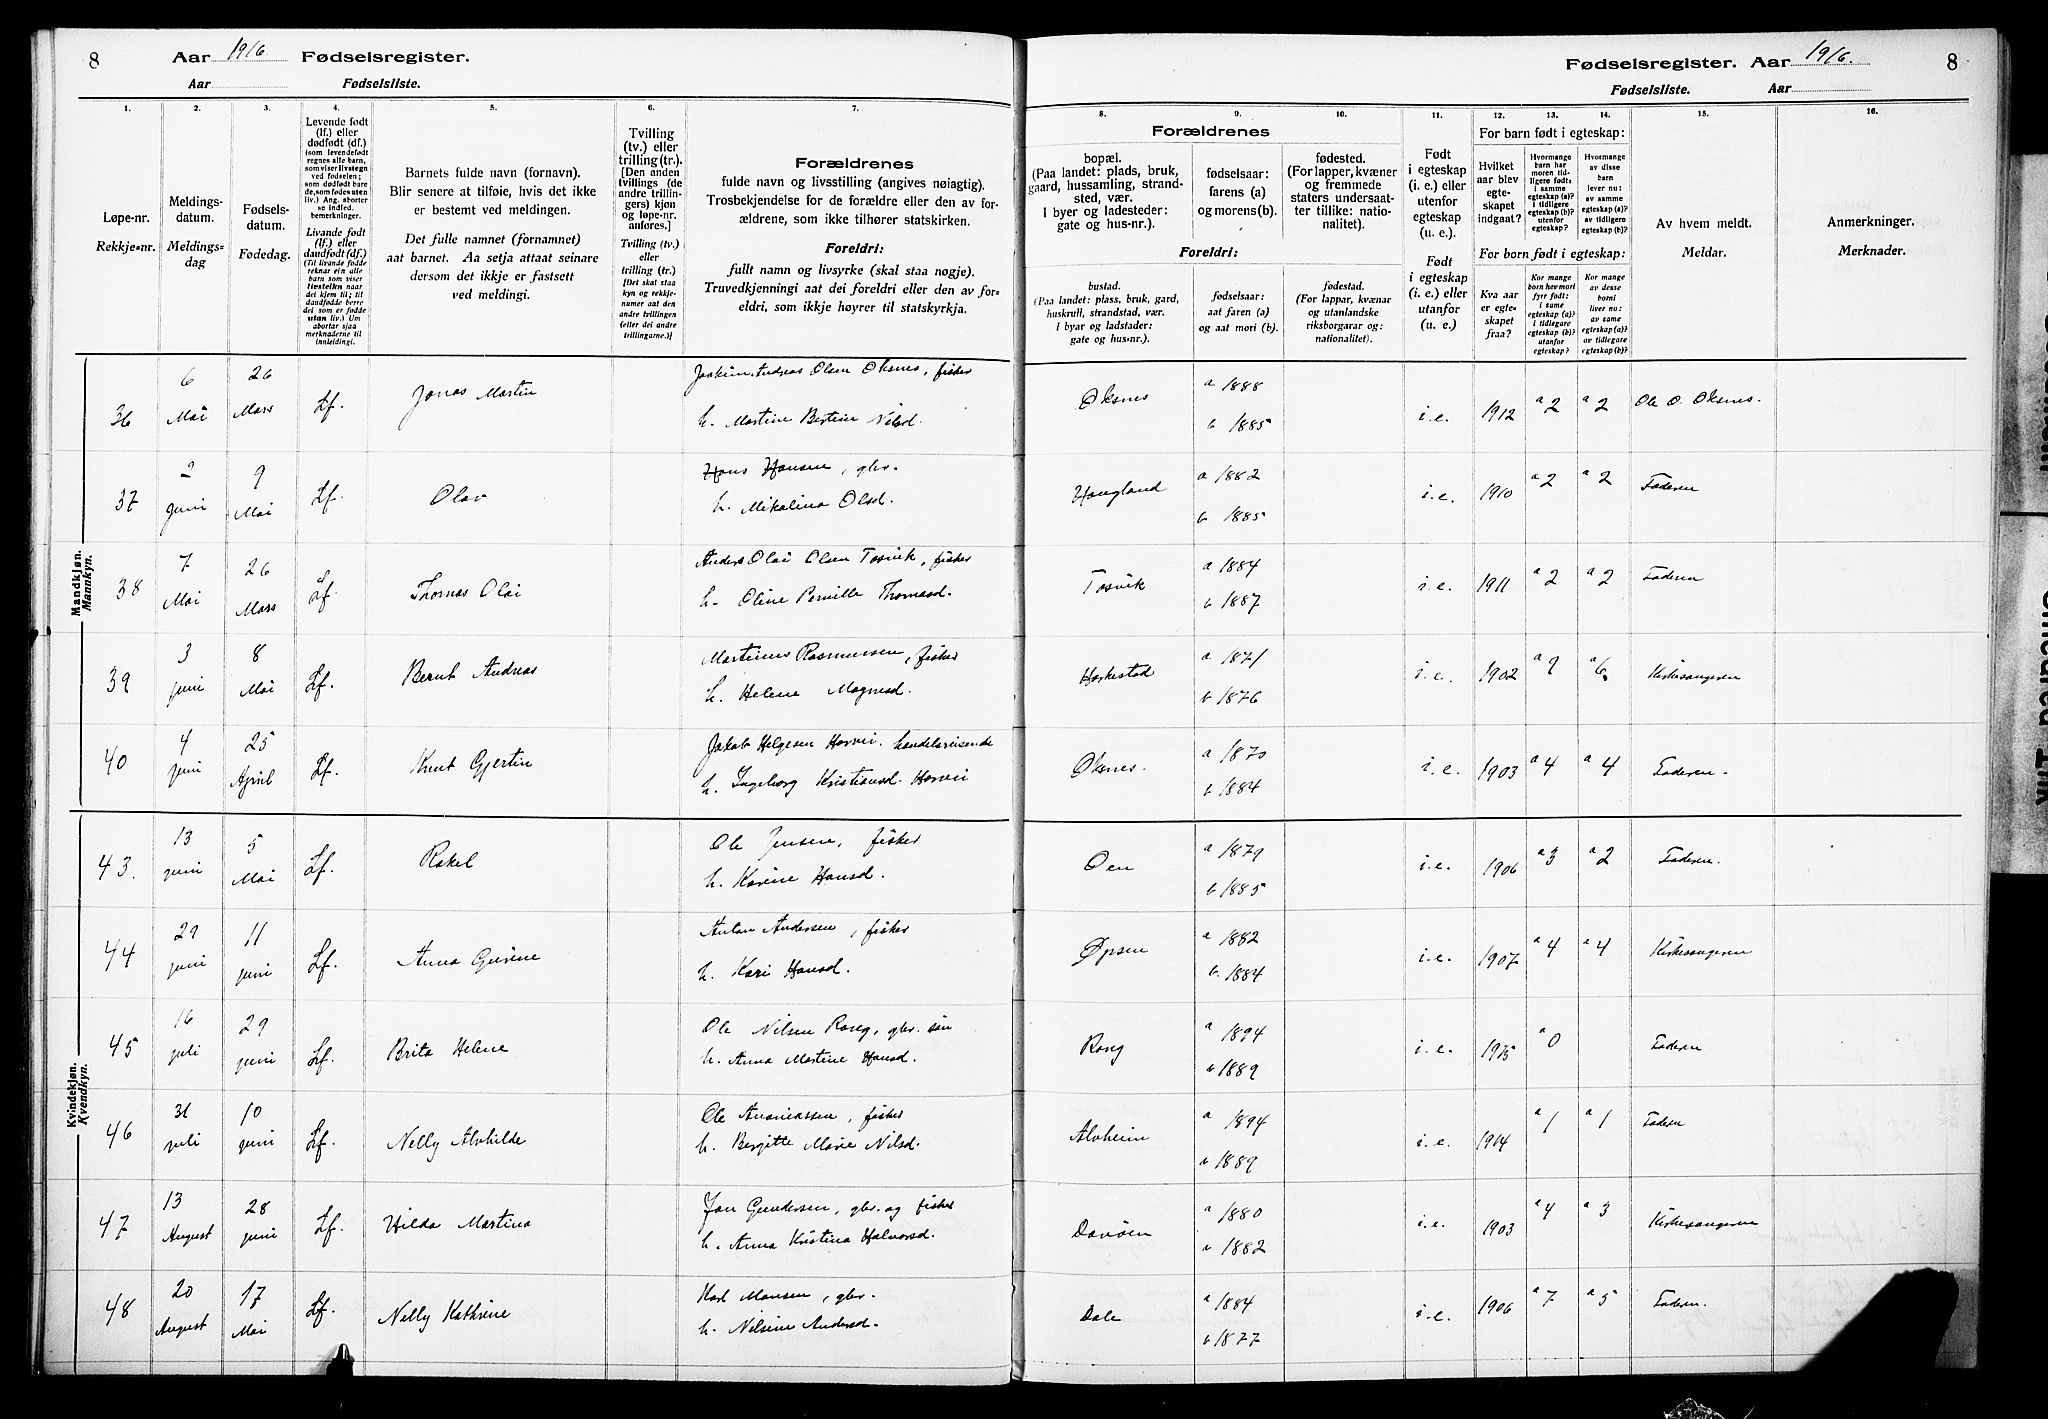 8 Aar 1916 Fødselsregister.
Aar Fødselsliste.
Fødselsregister. Aar 1916. 8
Fødselsliste. Aar
1. 2. 3. 4. 5. 6. 7. 8. 9. 10. 11. 12. 13. 14. 15. 16.
Løpe-nr.
Rekkje-nr.
Meldings-
datum.
Meldings-
dag
Fødsels-
datum.
Fødedag.
Levende født
(lf.) eller
dødfødt (df.)
(som levendefødt
regnes alle barn,
som viser livstegn
ved fødselen;
som dødfødt bare
de, som fødes uten
liv.) Ang. aborter
se indled.
bemerkninger.
Livande født
(lf.) eller
daudfødt (df.)
(Til livande fødde
reknar ein alle
barn som viser
livsteikn naar
dei kjem til; til
daudfødde berre
dei som er fødde
utan liv.) Um
abortar sjaa
merknaderne til
innleidingi.
Barnets fulde navn (fornavn).
Blir senere at tilføie, hvis det ikke
er bestemt ved meldingen.
Det fulle namnet (fornamnet)
aat barnet. Aa setja attaat seinare
dersom det ikkje er fastsett
ved meldingi.
Tvilling
(tv.) eller
trilling (tr.).
[Den anden
tvillings (de
andre trillin-
gers) kjøn
og løpe-nr.
anføres.]
Tvilling (tv.)
eller
trilling (tr.)
[Det skal staa
kyn og rekkje-
numer aat den
andre tvillingen
(eller dei andre
trillingarne.)]
Forældrenes
fulde navn og livsstilling (angives nøiagtig).
Trosbekjendelse for de forældre eller den av for-
ældrene, som ikke tilhører statskirken.
Foreldri:
fullt namn og livsyrke (skal staa nøgje).
Truvedkjenningi aat dei foreldri eller den av for-
eldri, som ikkje høyrer til statskyrkja.
Forældrenes
bopæl.
(Paa landet: plads, bruk,
gaard, hussamling, strand-
sted, vær.
I byer og ladesteder:
gate og hus-nr.).
fødselsaar:
farens (a)
og morens (b).
fødested.
(For lapper, kvæner
og fremmede
staters undersaat-
ter tillike: natio-
nalitet).
Foreldri:
bustad.
(Paa landet: plass, bruk, gard,
huskrull, strandstad, vær.
I byar og ladstader:
gate og hus-nr.).
fødselsaar:
aat faren (a)
og aat mori (b).
fødestad.
(For lappar, kvænar
og utanlandske
riksborgarar og:
nationalitet).
Født
i egteskap
(i. e.) eller
utenfor
egteskap
(u. e.).
Født
i egteskap
(i. e.) eller
utanfor
(u. e.)
For barn født i egteskap:
Hvilket
aar blev
egte-
skapet
indgaat?
Hvormange
barn har
moren tid-
ligere født:
i samme
egteskap (a)?
i tidligere
egteskap (b)?
utenfor
egteskap?
Hvormange
av disse
barn
lever nu:
av samme
egteskap (a)?
av tidligere
egteskap (b)?
For born født i egteskap:
Kva aar
er egte-
skapet
fraa?
Kor mange
born hev mori
fyrr født:
i same
egteskap (a)?
i tidlegare
egteskap (b)?
utanfor
egteskap?
Kor mange
av desse
borni
liver no:
av same
egteskap (a)?
av tidlegare
egteskap (b)?
Av hvem meldt.
Meldar.
Anmerkninger.
Merknader.
Mandkjøn.
Mankyn.
36 6 Mai 26 Mars Lf. Jonas Martin Joakim Andreas Olsen Øksnes, fisker
h. Martine Bertine Nilsd. Øksnes a 1888 b 1885 i. e. 1912 a 2 a 2 Ole O. Øksnes.
37 2 juni 9 Mai Lf. Olav Hans Hansen, gbr.
h. Mikalina Olsd. Haugland a 1882 b 1885 i. e. 1910 a 2 a 2 Faderen
38 7 Mai 26 Mars Lf. Thomas Olai Anders Olai Olsen Tosvik, fisker
h. Oline Pernille Thomasd. Tosvik a 1884 b 1887 i. e. 1911 a 2 a 2 Faderen
39 3 juni 8 Mai Lf. Bernt Andreas Martinus Rasmussen, fisker
h. Helene Magnesd. Harkestad a 1871 b 1876 i. e. 1902 a 9 a 6 Kirkesangeren
40 4 juni 25 April Lf. Knut Gjertin Jakob Helgesen Horvei. handelsreisende
h. Ingeborg Kristiansd. Horvei Øksnes. a 1870 b 1884 i. e. 1903 a 4 a 4 Faderen.
Kvindekjøn.
Kvendkyn.
43. 13 juni 5 Mai Lf. Rakel Ole Jensen, fisker
h. Karine Hansd. Oen a 1879 b 1885 i. e. 1906 a 3 a 2 Faderen.
44 29 juni 11 juni Lf. Anna Gurine Anton Andersen, fisker
h. Kari Hansd. Øpsen a 1882 b. 1884 i. e. 1907 a 4 a 4 Kirkesangeren
45 16 juli 29 juni Lf. Brita Helene Ole Nilsen Rong, gbr. søn
h. Anna Martine Hansd. Rong a 1894 b 1889 i. e. 1915 a 0 Faderen
46 31 juli 10 juni Lf. Nelly Alvhilde Ole Ananiassen, fisker
h. Bergitte Marie Nilsd. Alvheim a 1894 b 1889 i. e. 1914 a 1 a 1 Faderen
47 13 August 28 juni Lf. Hilda Martina Jon Gundersen, gbr. og fisker
h. Anna Kristina Halvorsd. Davøen a 1880 b 1882 i. e. 1903 a 4 a 3 Kirkesangeren
48 20 August 17 Mai Lf. Nelly Kathrine Karl Monsen, gbr.
h. Nilsine Andersd. Dale a 1884 b 1877 i. e. 1906 a 7 a 5 Faderen.